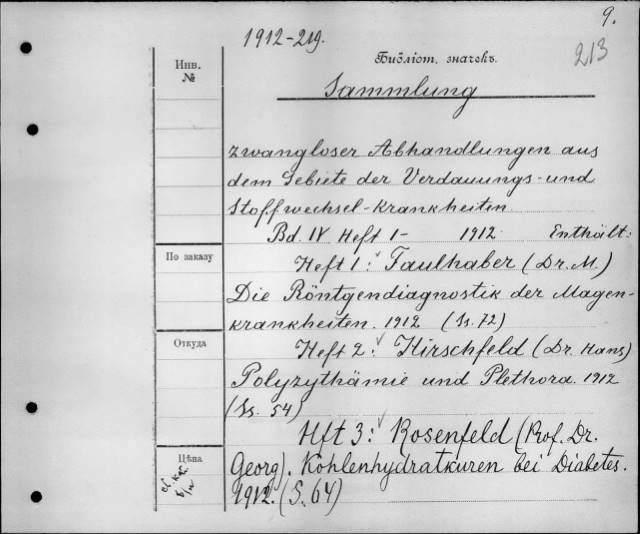 9.
1912-219.
213
Библіот. значекъ.
Инв.
№
Sammlung
zwangloser Abhandlungen aus
dem Gebiete der Verdauungs- und
Stoffwechsel-Krankheiten
Bd. IV Heft 1- 1912 Enthält:
По заказу
Heft 1: Faulhaber (Dr. M.)
Die Röntgendiagnostik der Magen-
krankheiten. 1912 (Ss. 72)
Откуда
Heft 2: Hirschfeld (Dr. Hans)
Polyzythämie und Plethora. 1912
(Ss. 54)
Hft 3: Rosenfeld (Prof. Dr.
Цѣна
Georg). Kohlenhydratkuren bei Diabetes.
1912. (S. 64)